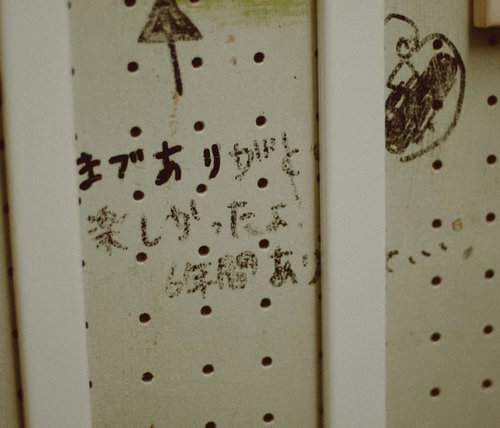 まであり がと
楽しかったよ
6年間 あり